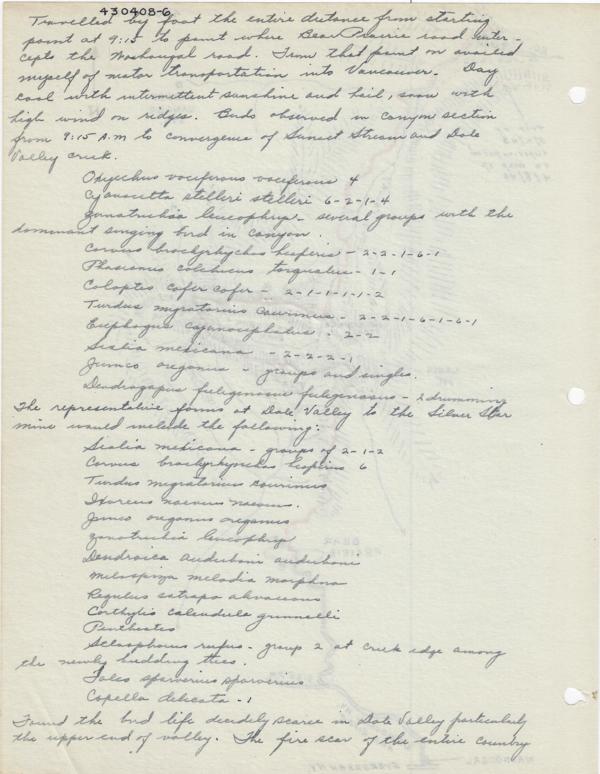 430408-6
Travelled by foot the entire distance from starting
point at 9:15 to point where Bear Prairie road inter-
cepts the Washougal road. From that point on availed
myself of motor transportation into Vancouver. Day
cool with intermittent sunshine and hail, snow with
high wind on ridges. Birds observed in canyon section
from 9:15 A.M to convergence of Sunset Stream and Dole
Valley creek.
Oxyechus vociferous vociferous 4
Cyanocitta stelleri stelleri 6-2-1-4
Zonotrichia leucophrys - several groups with the
dominant singing bird in canyon.
Corvus brachyrhychos hesperis - 2-2-1-6-1
Phasianus colchicus torquatus - 1-1
Colaptes cafer cafer - 2-1-1-1-1-2
Turdus migratorius caurinus - 2-2-1-6-1-6-1
Euphagus cyanocephalus - 2-2
Sialia mexicana - 2-2-2-1
Junco oreganus - groups and singles.
Dendragapus fuliginosus fuliginosus - 2 drumming
The representative forms at Dole Valley to the Silver Star
mine would include the following:
Sialia mexicana - groups of 2-1-2
Corvus brachyrhynchos hesperis 6
Turdus migratorius caurinus
Ixoreus naevius naevius.
Junco oreganus oreganus
Zonotrichia leucophrys
Dendroica auduboni auduboni
Melospiza melodia morphna
Regulus satrapa olivaceous
Corthylio calendula grinnelli
Penthestes
Selasphorus rufus - group 2 at creek edge among
the newly budding trees.
Falco sparverius sparverius
Capella delicata - 1
Found the bird life decidely scarce in Dole Valley particularly
the upper end of valley. The fire scar of the entire country